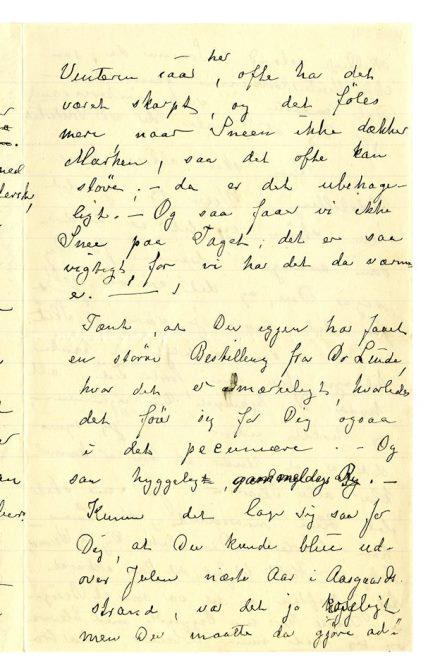 her
Vinteren iaar, ofte har det
været skarpt, og det føles
mere naar Sneen ikke dækker
Marken, saa det ofte kan
støve; – da er det ubehage-
ligt. – Og saa faar vi ikke
Snee paa Taget, det er saa
vigtigt, for vi har det da varm-
e. –
Tænk, at Du iggen har faaet
en større Bestilling fra Dr Linde,
hvor det er mærkeligt, hvorledes
det føier sig for Dig ogsaa
i det pecuniære. – Og
saa hyggeligt
Kunne det lage sig saa for
Dig, at Du kunde blive ud-
over Julen næste Aar i Aasgaards-
strand, var det jo hyggeligt
men Du maatte da gjöre ad-